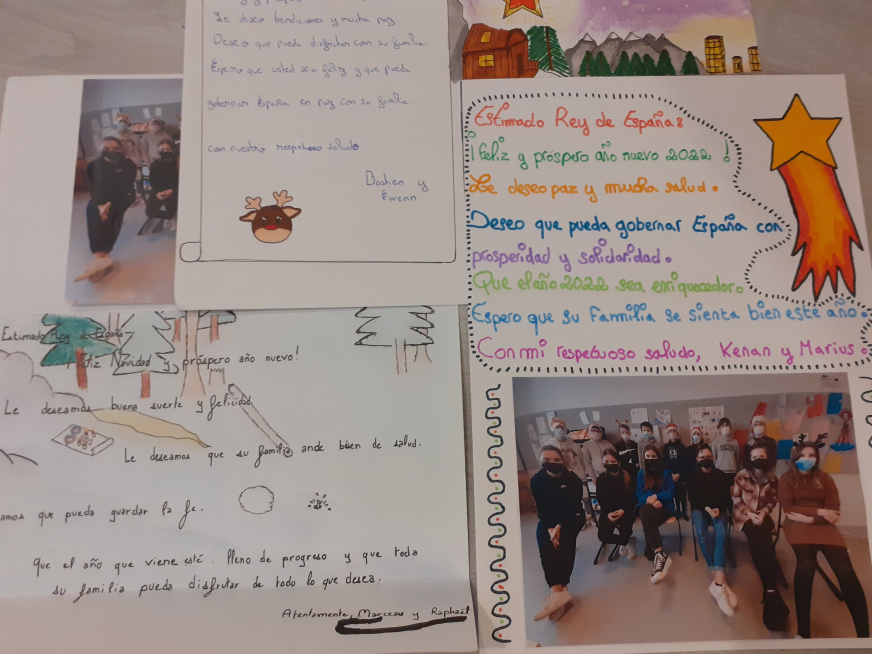 Le deseo bendiciones y mucha paz.
Deseo que pueda disfrutar con su familia.
Espero que usted sea feliz y que pueda
gobernar España en paz con su familia.
con nuestro respetuoso saludo
Bastien y
Ewenn
Estimado Rey de España:
¡Feliz y próspero año nuevo 2022!
Le deseo paz y mucha salud.
Deseo que pueda gobernar España con
prosperidad y solidaridad.
Que el año 2022 sea enriquecedor.
Espero que su Familia se sienta bien este año.
Con mi respetuoso saludo, Kenan y Marius.
Estimado Rey de España
Feliz Navidad y próspero año nuevo!
Le deseamos buena suerte y felicidad.
Le deseamos que su familia ande bien de salud.
que pueda guardar la fe.
Que el año que viene esté lleno de progreso y que toda
su familia pueda disfrutar de todo lo que desea.
Atentamente, Marceau y Raphaël